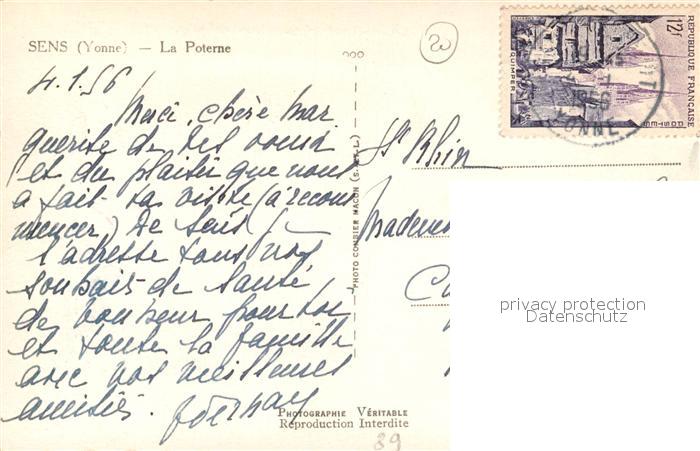 SENS (Yonne) — La Poterne
20
4.1.56
Merci, chère Mar
guerite de tes voeux
et du plaisir que nous
a fait ta visite (à recom
mencer) De Sens je
t'adresse tous nos
souhaits de santé,
de bonheur pour toi
et toute la famille
avec nos meilleures
amitiés.
PHOTO COMBIER MACON (S.-&-L.)
PHOTOGRAPHIE VÉRITABLE
Reproduction Interdite
89
12f
REPUBLIQUE FRANÇAISE
POSTES
QUIMPER
YONNE
St Rhin
Mademo
privacy protection
Datenschutz